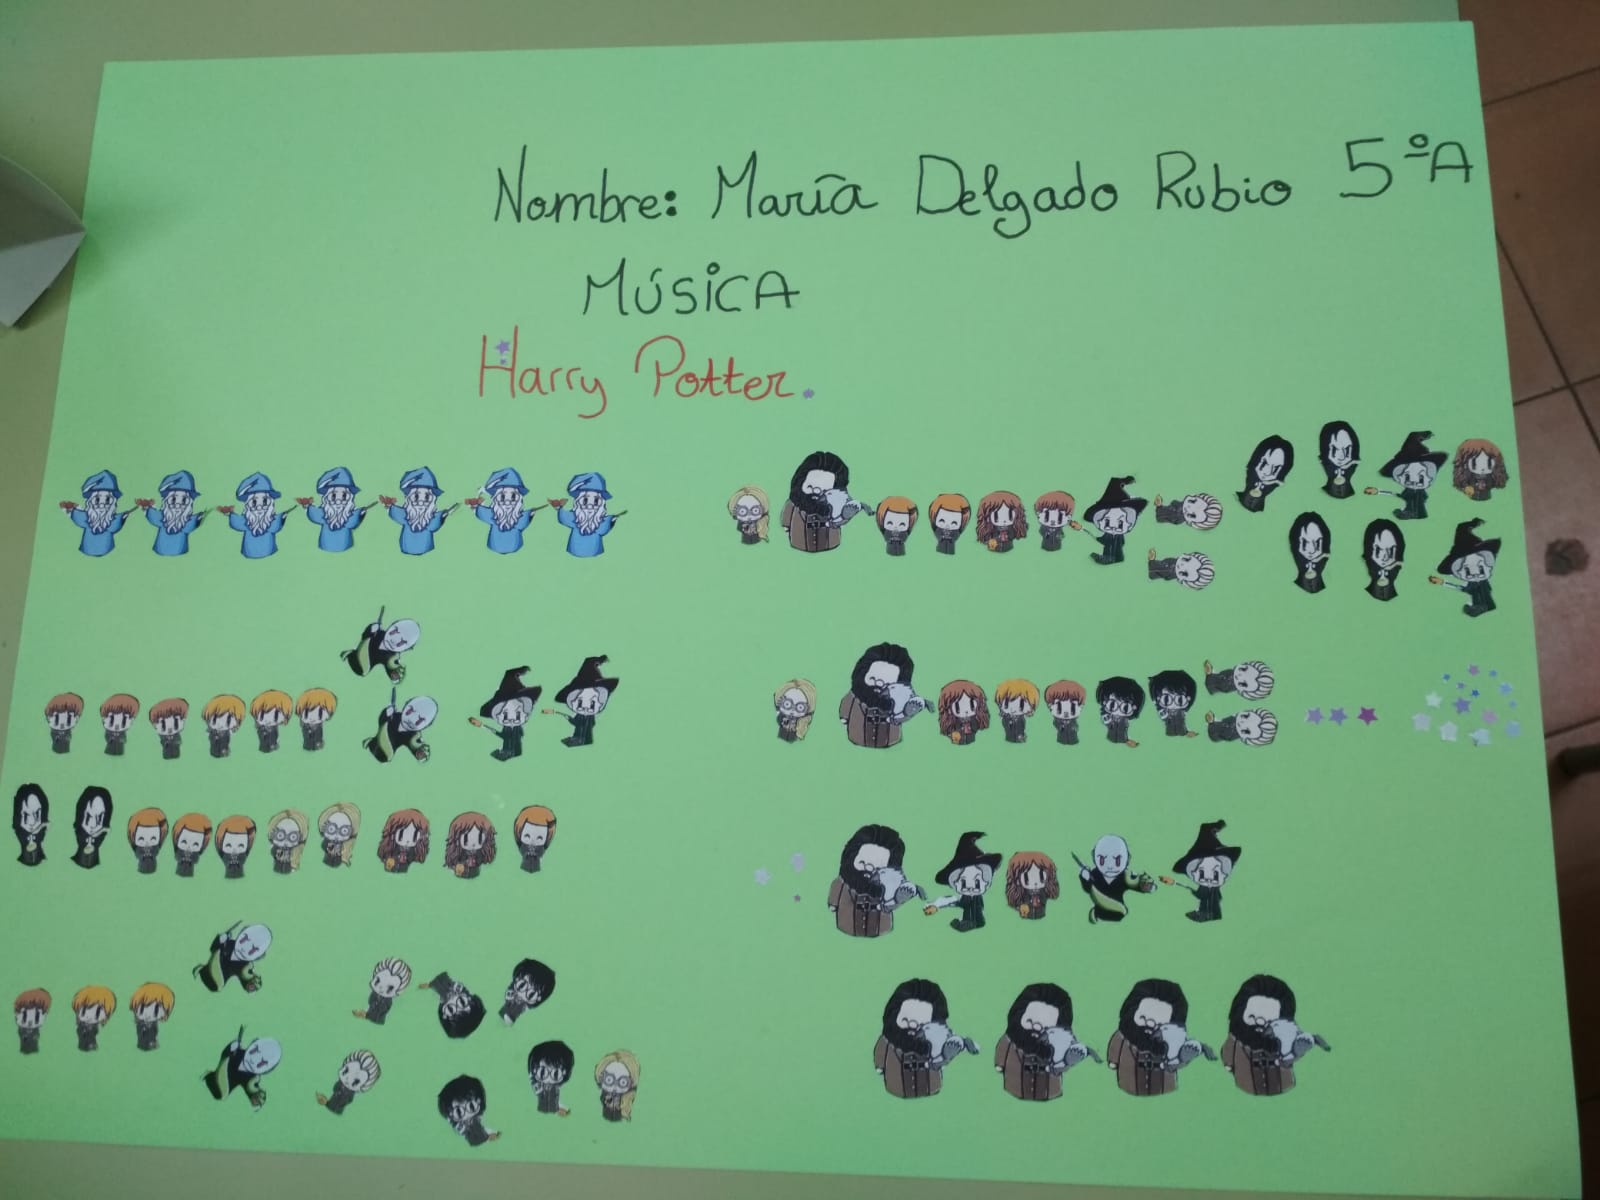 Nombre: María Delgado Rubio 5ºA
MÚSICA
Harry Potter.